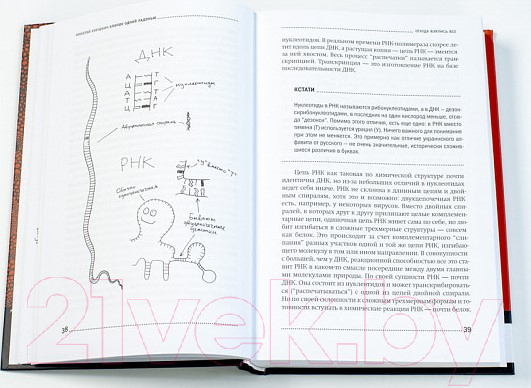 ХЛОПОК ОДНОЙ ЛАДОНЬЮ
ДНК
А Т
Т А
Ц Г
Г Ц
РНК
Обычно
одноцепочечная
"У" вместо "Т"
Бывают
двуцепочечные
участки
38
ОТКУДА ВЗЯЛОСЬ ВСЕ
нуклеотидов. В реальном времени РНК-полимераза скорее ле-
тит вдоль цепи ДНК, а растущая копия — цепь РНК — тянется
за ней хвостом. Весь процесс "распечатки" называется транс-
крипцией. Транскрипция — это изготовление РНК на базе
последовательности ДНК.
КСТАТИ
Нуклеотиды в РНК называются рибонуклеотидами, а в ДНК — дезок-
сирибонуклеотидами, в последних на один кислород меньше, от-
сюда "дезокси". Помимо этого отличия, есть еще одно: в РНК вместо
тимина (Т) используется урацил (У). Ничего важного для понимания
при этом не меняется. Это примерно как отличие украинского ал-
фавита от русского — не очень значительные, исторически сложив-
шиеся различия в буквах.
Цепь РНК как таковая по химической структуре почти
идентична ДНК, но из-за небольших отличий в нуклеотидах
ведет себя иначе. РНК не склонна к длинным цепям и двой-
ным спиралям, хотя это и возможно: двухцепочечная РНК
есть, например, у некоторых вирусов. Вместо двойных спи-
ралей, в которых друг к другу прилипают целые комплемен-
тарные цепи, одиночная цепь РНК живет сама по себе, но лю-
бит изгибаться в сложные трехмерные структуры — совсем
как белок. Это происходит за счет комплементарного "сли-
пания" разных участков одной и той же цепи РНК, изгибаю-
щего молекулу в том или ином направлении. В совокупности
с большей, чем у ДНК, реакционной способностью все это ста-
вит РНК в каком-то смысле посередине между двумя главны-
ми молекулами природы. По своей сущности РНК — почти
ДНК. Она состоит из нуклеотидов и может транскрибировать-
ся ("распечатываться") с одной из цепей двойной спирали.
Но по своей склонности к сложным трехмерным формам и го-
товности вступать в химические реакции РНК — почти белок.
39
21vek.by